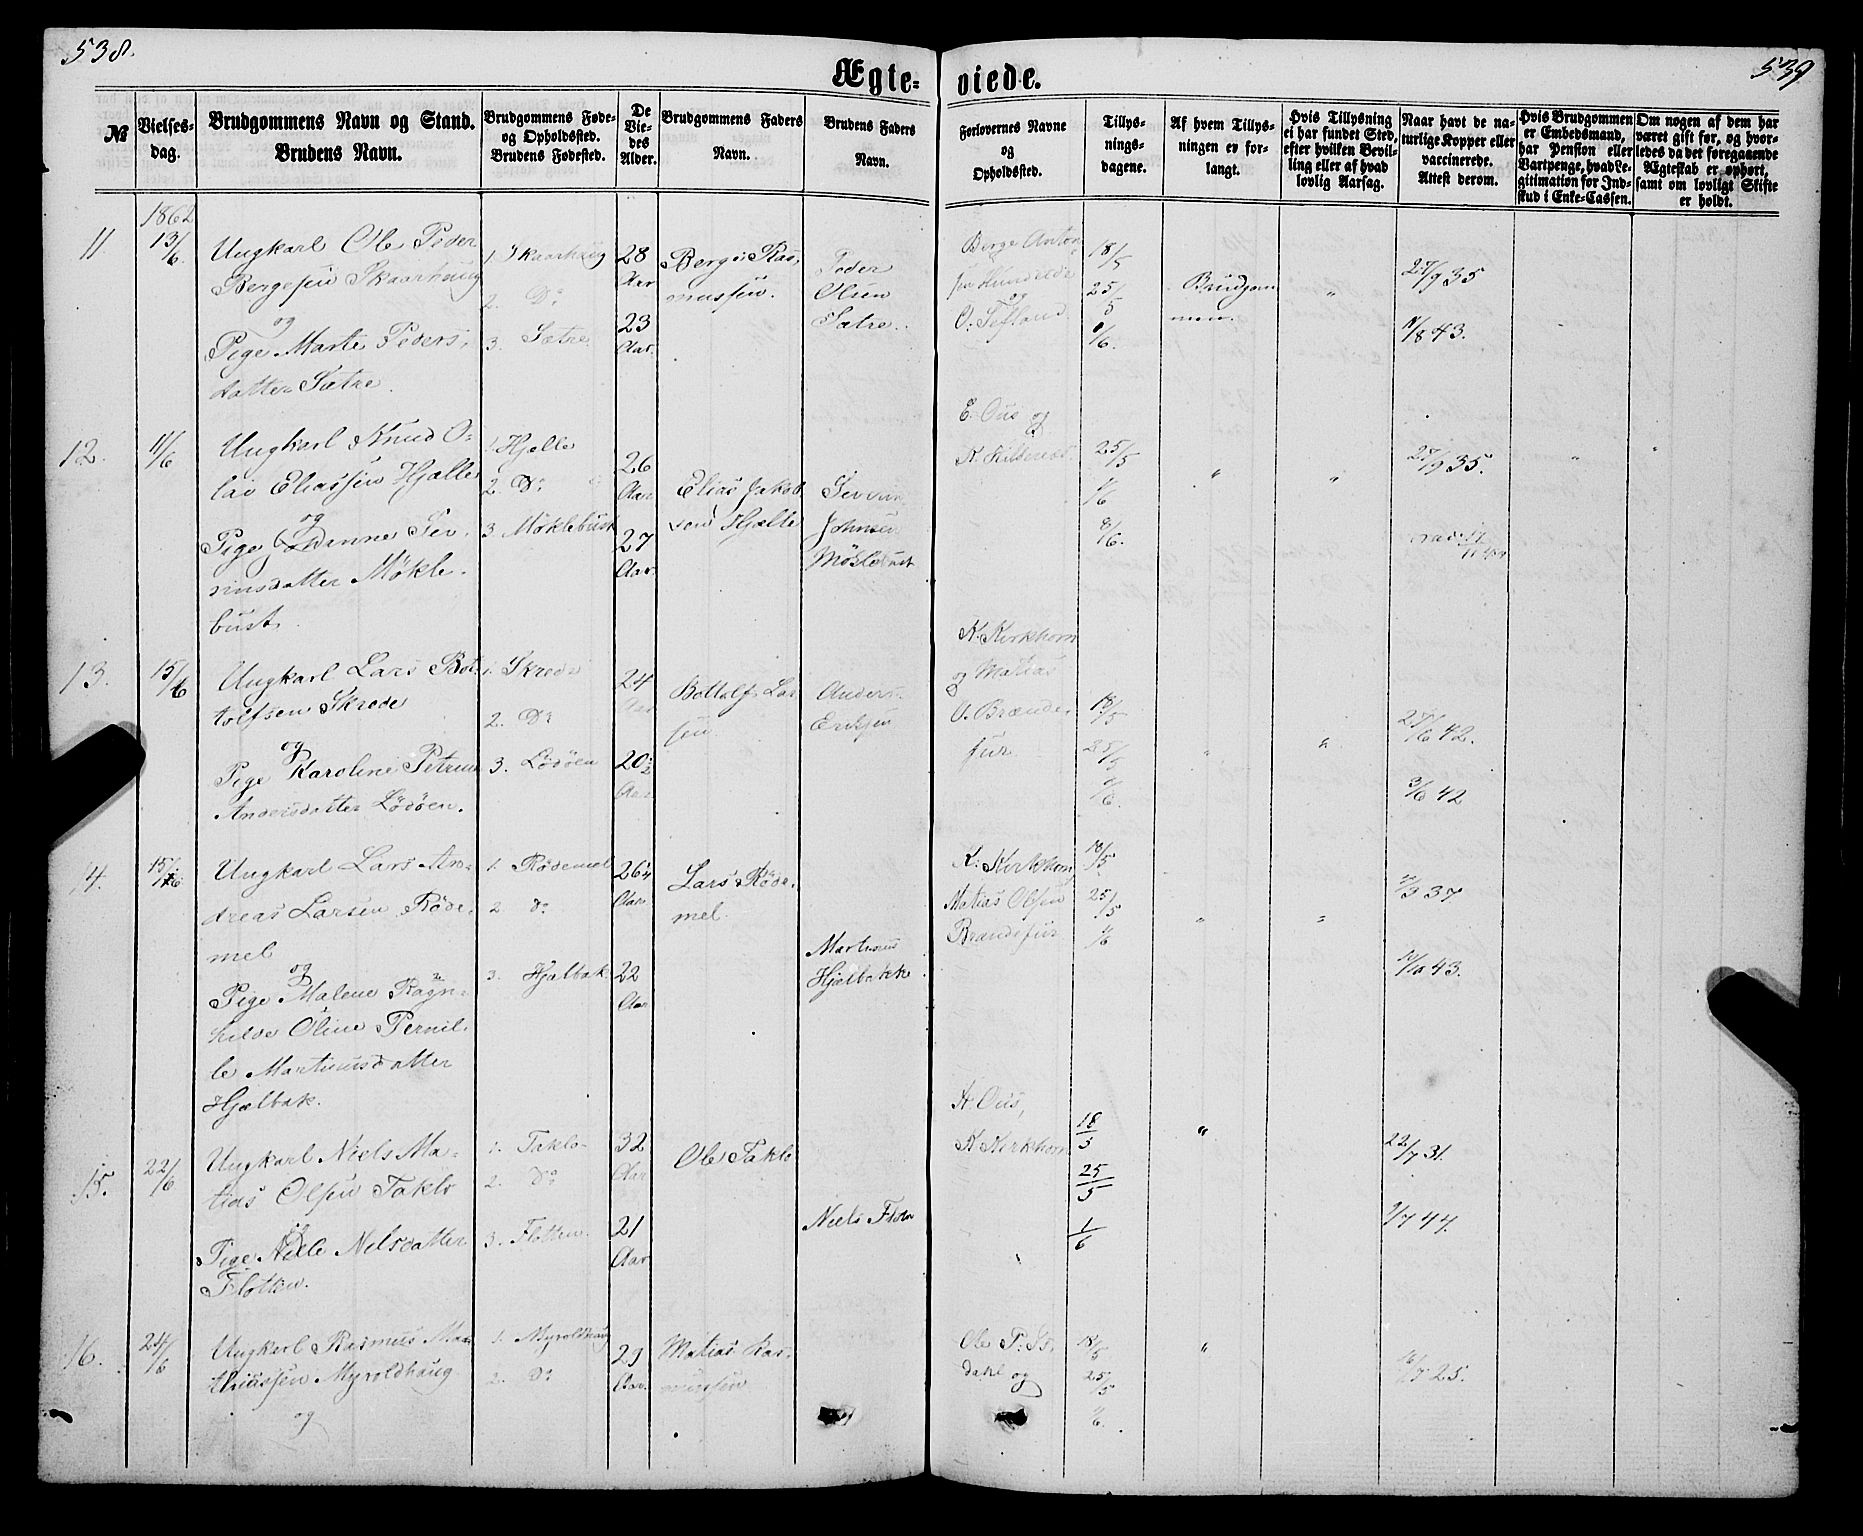 538.
539
Ægte-viede.
№
Vielses-dag.
Brudgommens Navn og Stand.
Brudens Navn.
Brudgommens Føde-
og Opholdssted.
Brudens Fødested.
De
Vie-
des
Alder.
Brudgommens Faders
Navn.
Brudens Faders
Navn.
Forlovernes Navne
og
Opholdssted.
Tillys-
nings-
dagene.
Af hvem Tillys-
ningen er for-
langt.
Hvis Tillysning
ei har fundet Sted,
efter hvilken Bevil-
ling eller af hvad
lovlig Aarsag.
Naar havt de na-
turlige Kopper eller
vaccinerede.
Attest derom.
Hvis Brudgommen
er Embedsmand,
har Pension eller
Vartpenge, hvad Le-
gitimation for Ind-
skud i Enke-Cassen.
Om nogen af dem har
været gift før, og hvor-
ledes da det foregaaende
Ægteskab er ophørt,
samt om lovligt Skifte
er holdt.
1862
11
13/6
Ungkarl Ole Peder
Bergesen Skaarhaug
og
Pige Marte Peders-
datter Sætre.
1. Skaarhaug
2. Do
3. Sætre
28
Aar
23
Aar.
Berge Ras-
mussen.
Peder
Olsen
Sætre.
Berge Anton
og
18/5
25/5
1/6.
Brudgom-
men.
"
27/9 35
11/8 43.
12.
11/6
Ungkarl Knud O-
lai Eliassen Hjelle
og
Pige Johanne Sev-
rinsdatter Møkle-
bust.
1. Hjelle
2. Do
3. Møklebust
26
Aar
27
Aar.
Elias Jakob-
sen Hjelle
Severin
Johnsen
Møklebust
E. Ous og
25/5
1/6
8/6.
"
"
27/9 35.
"
"
13.
15/6
Ungkarl Lars Bot-
tolfsen Skrede
og
Pige Karoline Petrine
Andersdatter Lödöen.
1. Skrede
2. Do
3. Lödöen
24
Aar
20½
Aar
Bottolf Lar-
sen
Anders
Eriksen
K. Kirkhorn
og Matias
O. Brænde-
fur
18/5
25/5
1/6.
"
"
27/6 42.
3/6 42
14.
15/6
Ungkarl Lars An-
dreas Larsen Röde-
mel
og
Pige Malene Ragn-
hilde Oline Pernil-
le Martinusdatter
Hjelbak.
1. Rödemel
2. do
3. Hjelbak.
26¼
Aar
22
Aar
Lars Röde-
mel.
Martinus
Hjelbakke
K. Kirkhorn
Matias Olsen
Brændefur
18/5
25/5
1/6
"
"
37
10/10 43.
15.
22/6
Ungkarl Niels Ma-
tias Olsen Taklo
og
Pige Nille Nelsdatter
Flotten.
1. Taklo
2. Do
3. Flotten.
32
Aar
21
Aar
Ole Taklo
Niels Floten
A. Ous,
K. Kirkhorn
18/5
25/5
1/6
"
22/7 31.
9/7 44.
16.
24/6
Ungkarl Rasmus Ma-
thiassen Myroldhaug
og
1. Myroldhaug
2. Do
29
Aar.
Matias Ras-
mussen
Ole P.
og
18/5
25/5
1/6.
"
16/7 25.